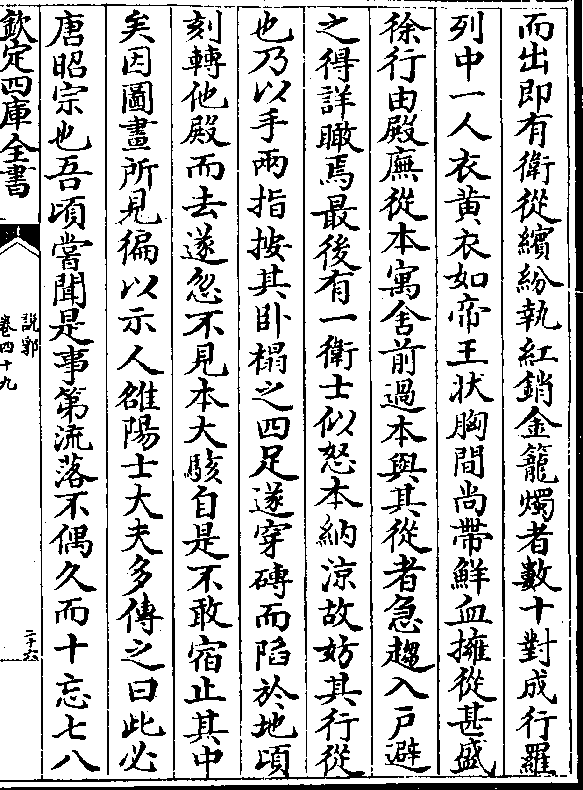 而出即有衛從繽紛執紅銷金籠燭者數十對成行羅
列中一人衣黃衣如帝王狀胸間尚帶鮮血擁從甚盛
徐行由殿廡從本寓舍前過本與其從者急趨入戶避
之得詳瞰焉最後有一衛士似怒本納涼故妨其行從
也乃以手兩指按其卧榻之四足遂穿磚而陷於地頃
刻轉他殿而去遂忽不見本大駭自是不敢宿止其中
矣因圖畫所見徧以示人雒陽士大夫多傳之曰此必
唐昭宗也吾頃嘗聞是事第流落不偶久而十忘七八
欽定四庫全書
說郛
卷四十九
二十六